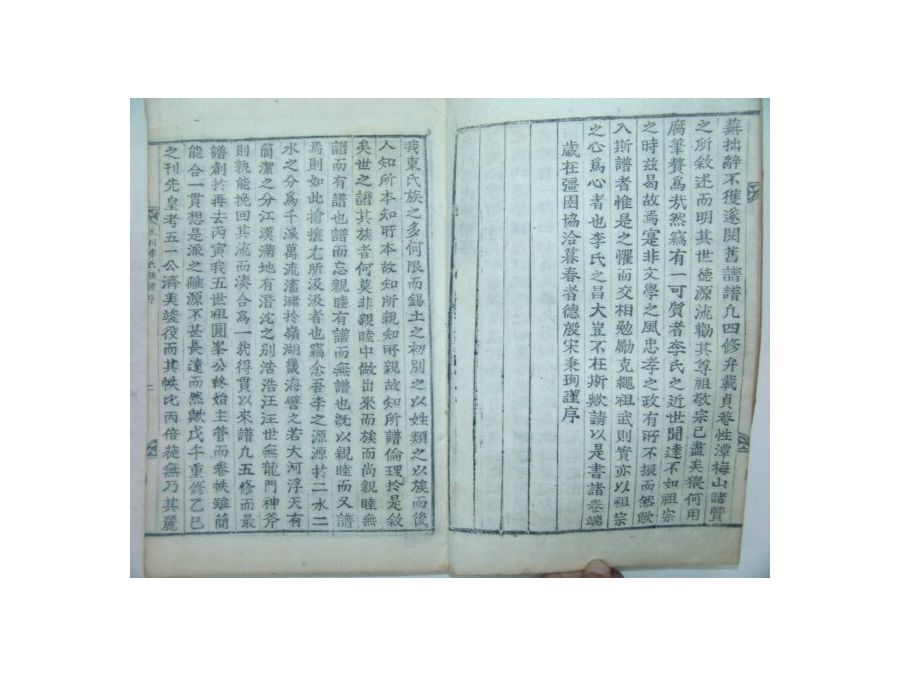 蕪拙辭不獲遂閱舊譜譜凡四修弁載貞菴性潭梅山諸賢
之所敘述而明其世德源流勸其尊祖敬宗已盡矣猥何用
腐筆贅爲哉然竊有一可質者李氏之近世聞達不如祖宗
之時茲曷故焉寔非文學之風忠孝之政有所不振而然歟
入斯譜者惟是之懼而交相勉勵克繩祖武則實亦以祖宗
之心爲心者也李氏之昌大豈不在斯歟請以是書諸卷端
歲在彊圉協洽暮春者德殷宋秉珣謹序
我東氏族之多何限而錫土之初別之以姓類之以族而後
人知所本知所本故知所親知所親故知所譜倫理於是敘
矣世之譜其族者何莫非親睦中做出來而族而尚親睦無
譜而有譜也譜而忘親睦有譜而無譜也旣以親睦而又譜
焉則如此搶攘尤所汲汲者也竊念吾李之源源於二水二
水之分爲千派萬流瀋瀦於嶺湖畿海譬之若大河浮天有
簡潔之分江漢滿地有潛沱之別浩浩汪汪世無龍門神斧
則孰能挽回其流而湊合爲一哉得貫以來譜凡五修而最
譜創於再去丙寅我五世祖圓峯公終始主管而卷帙雖簡
能合一貫想是派之離源不甚長遠而然歟戊午重修乙巳
之刊先皇考五一公濟美竣役而其帙比丙倍蓰無乃其麗
李氏族譜序
二